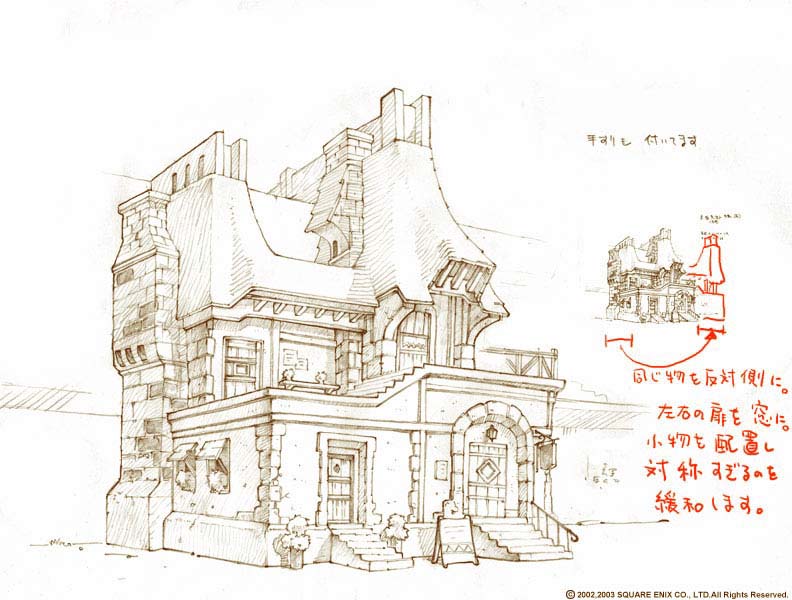 手すりも 付いてます
同じ物を反対側に。
左右の扉を窓に。
小物を配置し
対称すぎるのを
緩和します。
© 2002,2003 SQUARE ENIX CO., LTD.All Rights Reserved.